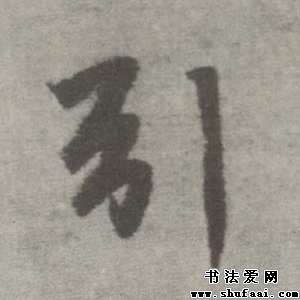 引
书法爱网
www.shufaai.com